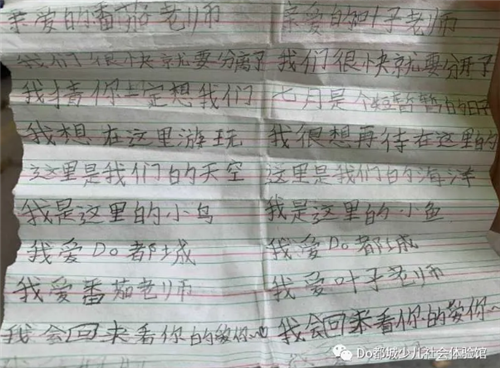 亲爱的番茄老师
我们很快就要分离了
我猜你一定想我们
我想在这里游玩
这里是我们的天空
我是这里的小鸟
我爱Do都城
我爱番茄老师
我会回来看你的
亲爱的叶子老师
我们很快就要分开了
七月是个
我很想再待在这里的
这里是我们的海洋
我是这里的小鱼
我爱Do都城
我爱叶子老师
我会回来看你的
Do都城少儿社会体验馆